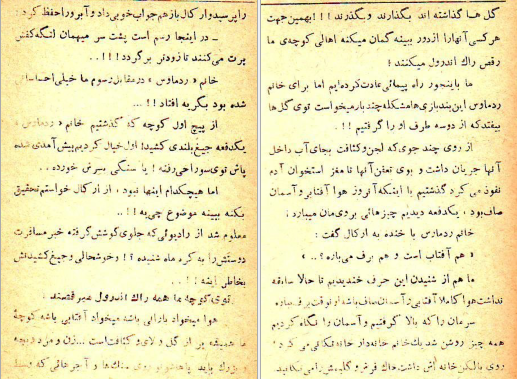 گل ها گذاشته اند بگذارند و بگذرند!!! بهمین جهت
هر کسی آنها را از دور ببینه گمان میکنه اهالی کوچه‌ی ما
رقص راک اندرول میکنند!
ما باینجور راه پیمائی عادت کرده‌ایم اما برای خانم
ردماوس این بند بازی‌ها مشکله چند بار میخواست توی گل‌ها
بیفتد که از دو سه طرف او را گرفتیم!!.
از روی چند جوی که لجن و کثافت بجای آب داخل
آنها جریان داشت و بوی تعفن آنها تا مغز استخوان آدم
نفوذ می کرد گذشتیم با اینکه آنروز هوا آفتابی و آسمان
صاف بود، یکدفعه دیدیم چیزهائی بروی‌مان میبارد:
خانم ردماوس با خنده به ارکال گفت:
« هم آفتاب است و هم برف می‌باره؟.. »
ما هم از شنیدن این حرف خندیدیم تا حالا سابقه
نداشت هوا کاملا آفتابی و آسمان صاف باشد او نوقت برف بباره
سرمان را که بالا گرفتیم و آسمان را نگاه کردیم
همه چیز روشن شد یک خانم خانه‌دار خانه تکانی می‌کرد!
روی بالکن خانه اش داشت خاک فرش و گلیمش را می تکانید.
را پرسید و ارکال باز هم جواب خوبی داد و آبرو را حفظ کرد:
ـ در اینجا رسم است پشت سر میهمان لنگه کفش
پرت می‌کنند تا زودتر برگردد!!!..
خانم « ردماوس » در مقابل رسوم ما خیلی احساساتی
شده بود بگریه افتاد!!...
از پیچ اول کوچه که گذشتیم خانم « ردماوس »
یکدفعه جیغ بلندی کشید! اول خیال کردیم پیش آمدی شده
پاش توی سوراخی رفته! یا سنگی سرش خورده..
اما هیچکدام اینها نبود، از ارکال خواستم تحقیق
بکنه ببینه موضوع چی‌یه!!..
معلوم شد از رادیوئی که جلوی گوشش گرفته خبر مسافرت
دوستش را به کره ماه شنیده؟! و خوشحالی و جیغ کشیدنش
بخاطر اینه!!..
توی کوچه ما همه راک اندرول میرقصند:
هوا میخواد بارانی باشه میخواد آفتابی باشه کوچه‌ی
ما همیشه پر از گل و لای و کثافت است... زن و مرد و بچه
و بزرگ باید روی سنگ‌ها و آجرهائی که وسط